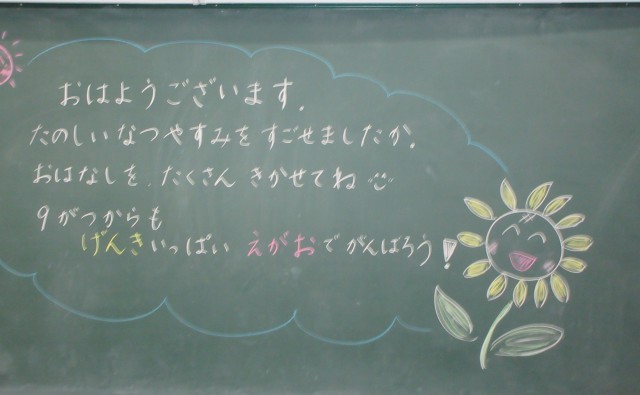 おはようございます。
たのしいなつやすみをすごせましたか。
おはなしを、たくさんきかせてね
9がつからも
げんきいっぱい えがおでがんばろう!